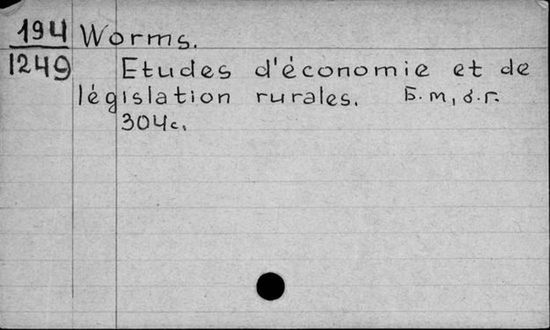 194 Worms.
1249 Etudes d'économie et de
législation rurales. Б.м, б.г.
304с.